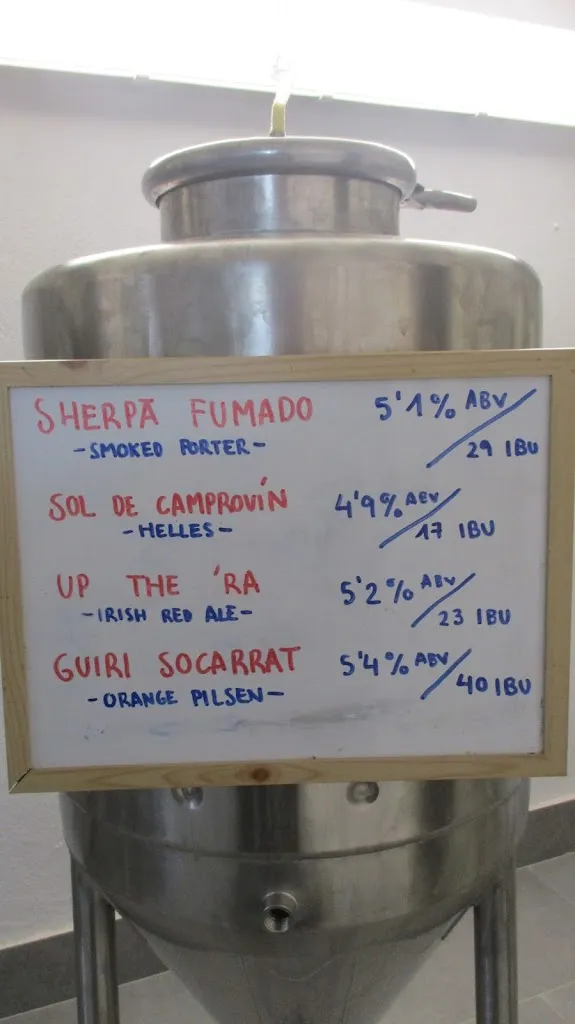 SHERPA FUMADO 5'1% ABV
-SMOKED PORTER- 29 IBU
SOL DE CAMPROVÍN 4'9% ABV
-HELLES- 17 IBU
UP THE 'RA 5'2% ABV
-IRISH RED ALE- 23 IBU
GUIRI SOCARRAT 5'4% ABV
-ORANGE PILSEN- 40 IBU